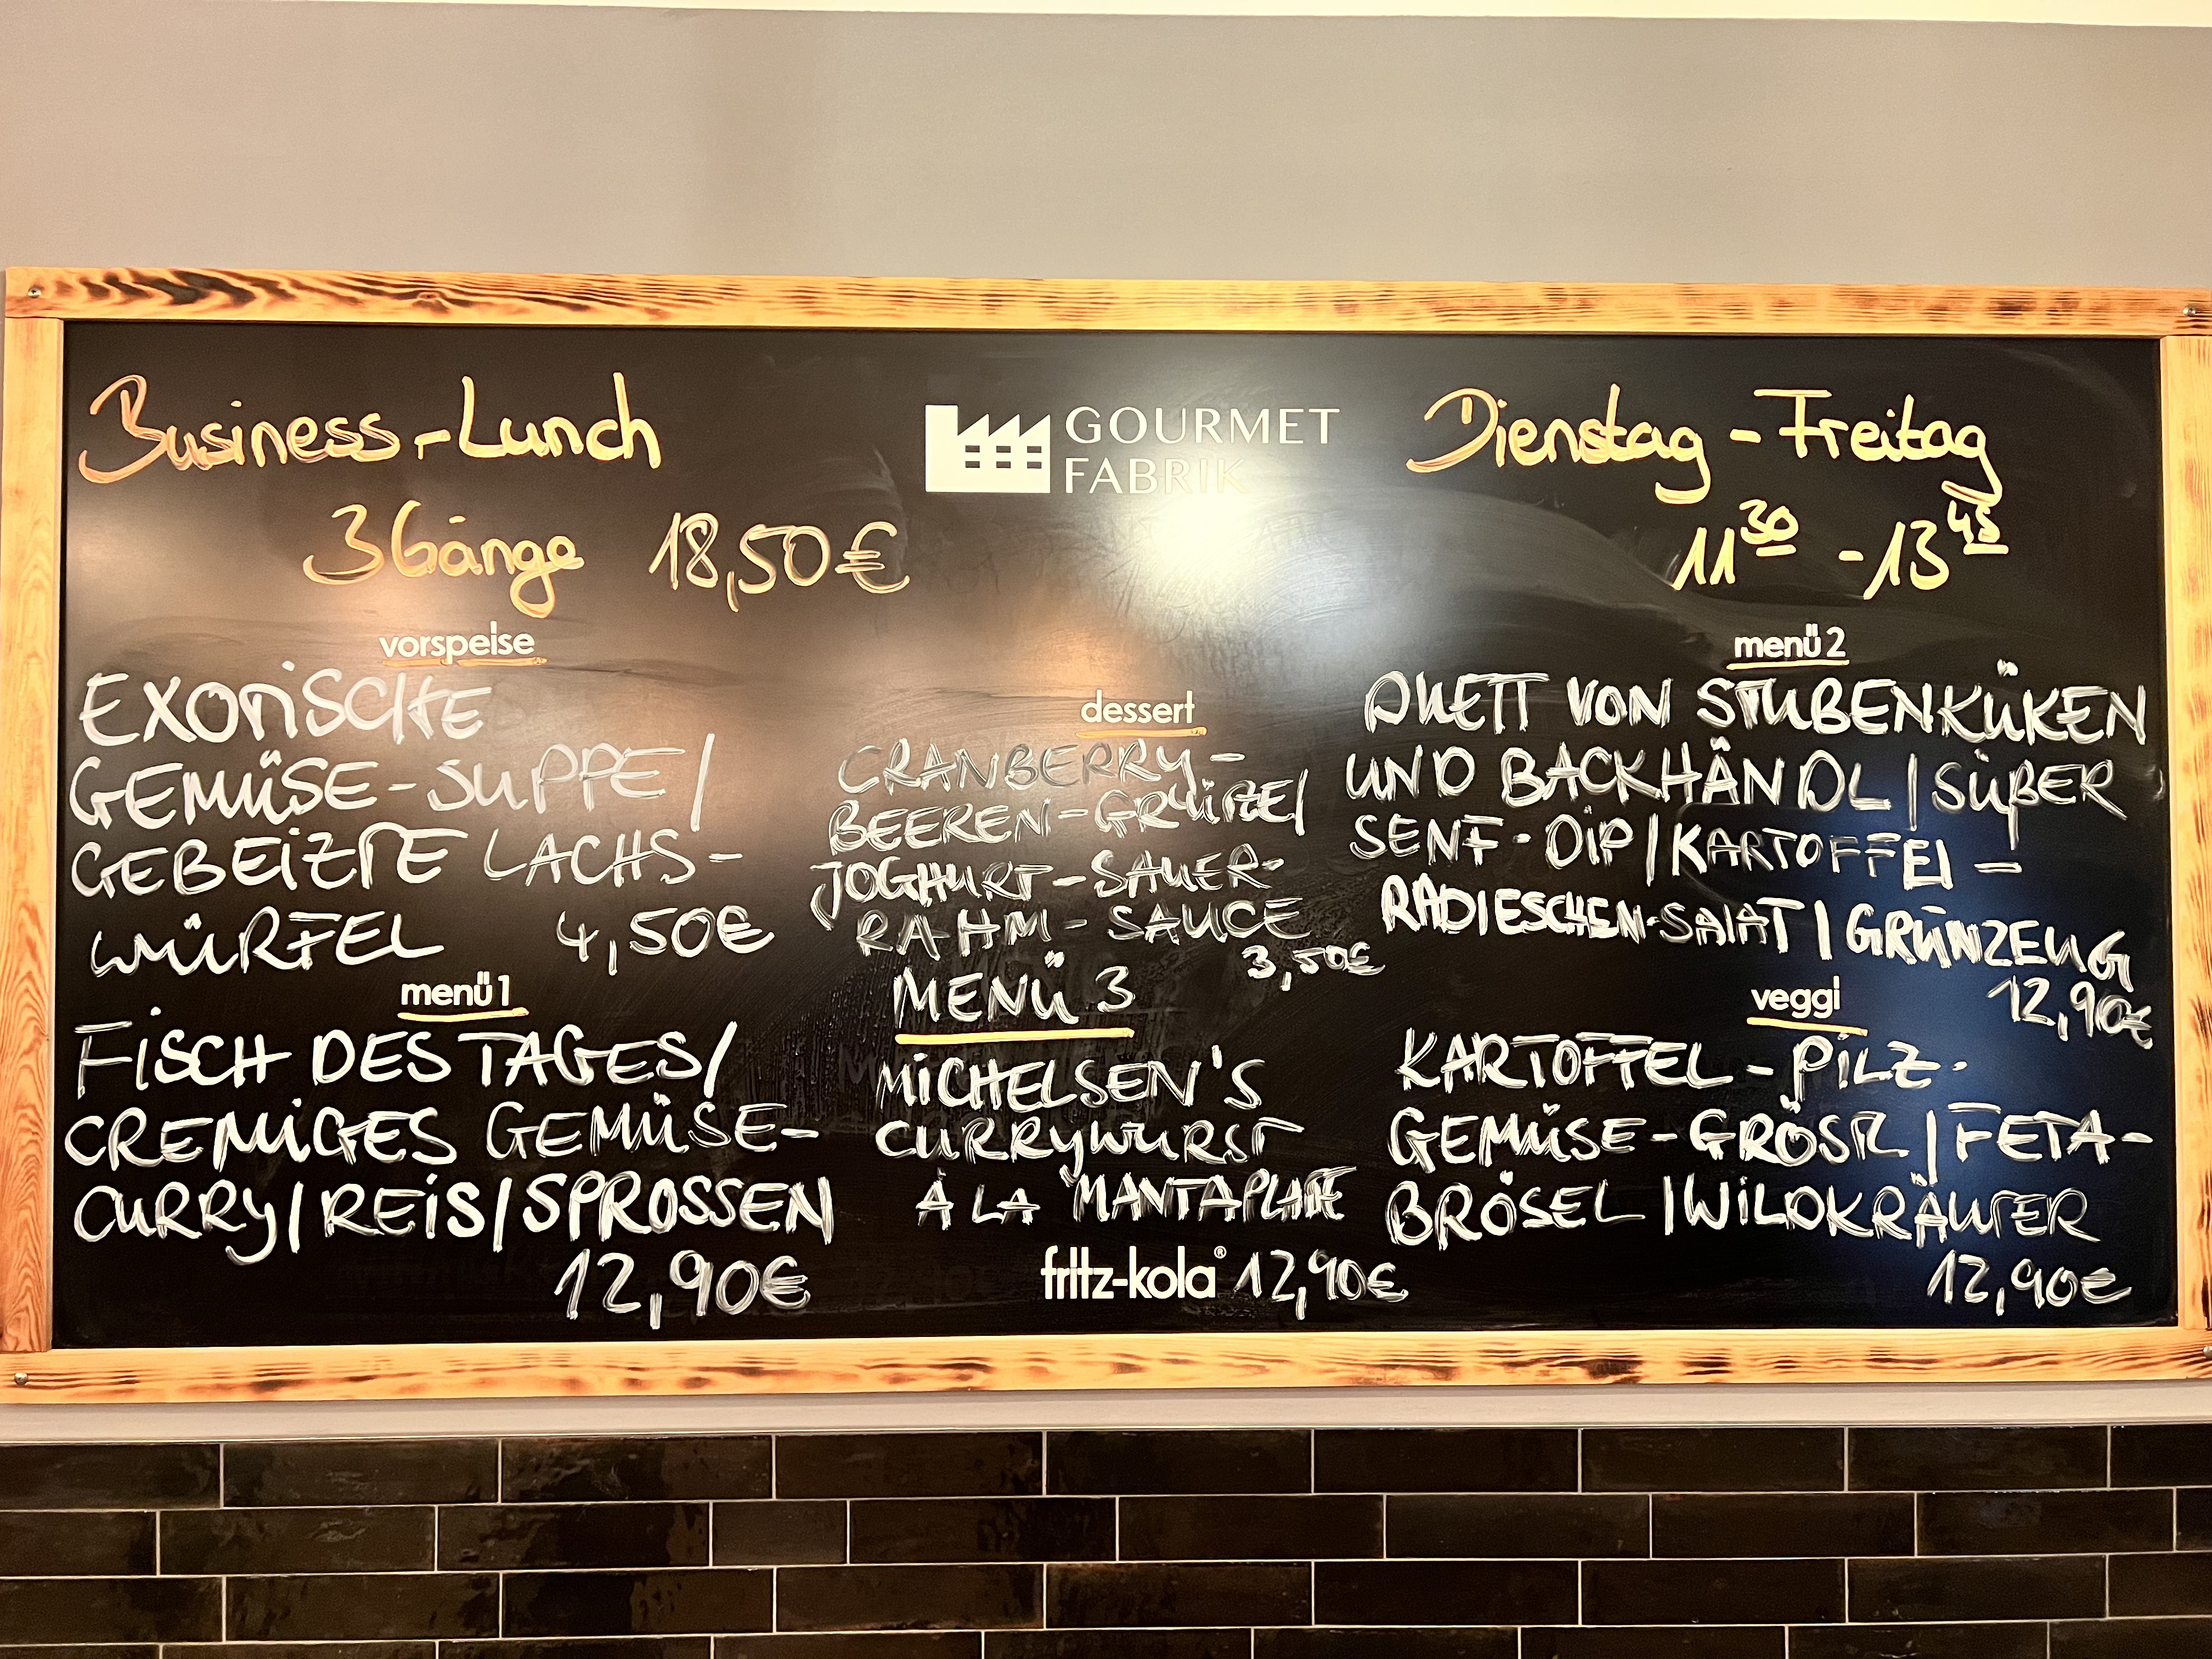 Business-Lunch
3 Gänge 18,50€
GOURMET
FABRIK
Dienstag - Freitag
11³⁰ - 13⁴⁵
vorspeise
EXOTISCHE
GEMÜSE-SUPPE/
GEBEIZTE LACHS-
WÜRFEL 4,50€
menü 1
FISCH DES TAGES/
CREMIGES GEMÜSE-
CURRY/REIS/SPROSSEN
12,90€
dessert
CRANBERRY-
BEEREN-GRÜTZE/
JOGHURT-SAUER-
RAHM-SAUCE
3,50€
MENÜ 3
MICHELSEN'S
CURRYWURST
À LA "MANTAPLATTE
fritz-kola® 12,90€
menü 2
DUETT VON STUBENKÜKEN
UND BACKHÄNDL/SÜßER
SENF-DIP/KARTOFFEL-
RADIESCHEN-SALAT/GRÜNZEUG
12,90€
veggi
KARTOFFEL-PILZ-
GEMÜSE-GRÖSTL/FETA-
BRÖSEL/WILDKRÄUTER
12,90€